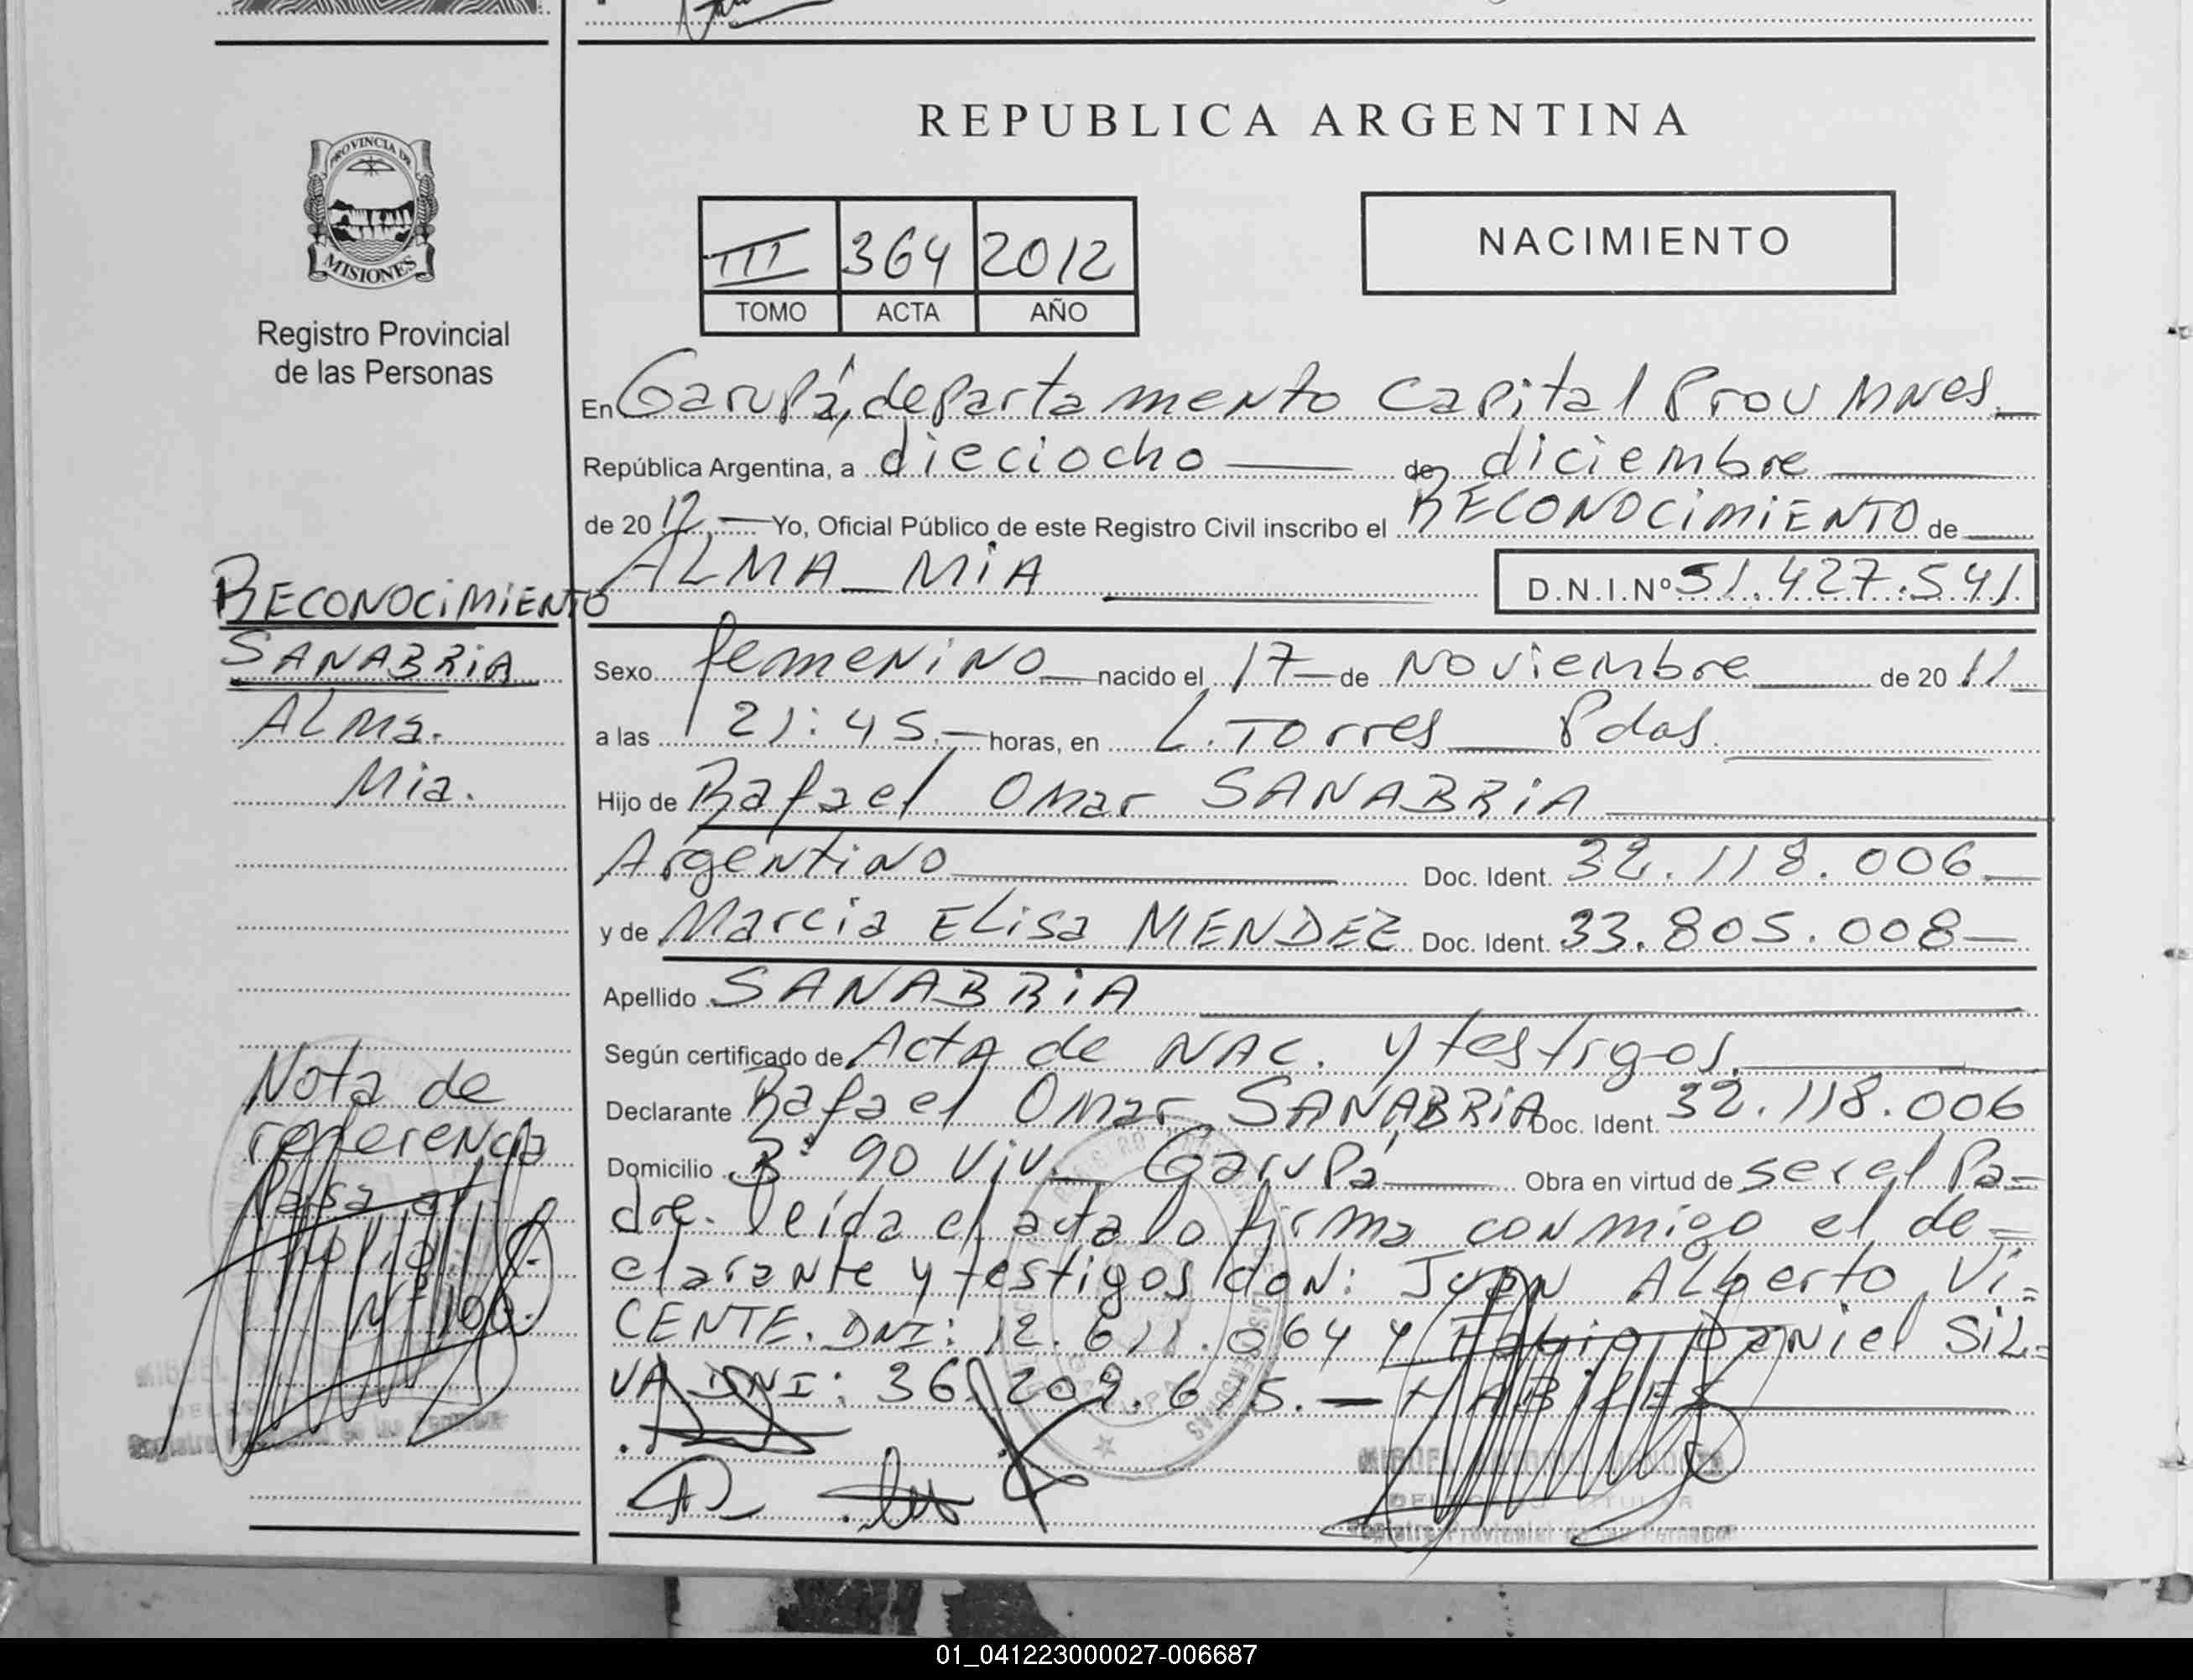 REPUBLICA ARGENTINA
PROVINCIA DE
MISIONES
Registro Provincial
de las Personas
III 364 2012
TOMO ACTA AÑO
NACIMIENTO
En Garupá, departamento Capital Prov Mnes.
República Argentina, a dieciocho de diciembre
de 20 12 Yo, Oficial Público de este Registro Civil inscribo el RECONOCIMIENTO de
ALMA MIA
D.N.I.Nº 51.427.541
Sexo femenino nacido el 17 de Noviembre de 20 11
a las 21:45. horas, en L. Torres Pdas.
Hijo de Rafael Omar SANABRIA
Argentino Doc. Ident. 32.118.006
y de Marcia Elisa MENDEZ Doc. Ident. 33.805.008
Apellido SANABRIA
Según certificado de Acta de NAC. y testigos.
Declarante Rafael Omar SANABRIA Doc. Ident. 32.118.006
Domicilio Bº 90 Viv. Garupá Obra en virtud de ser el Pa-
dre. leída el acta lo firma conmigo el de-
clarante y testigos don: Juan Alberto Vi-
CENTE. DNI: 12.611.064 y Fabio Daniel SIL-
VA DNI: 36.209.615. HABILES
RECONOCIMIENTO
SANABRIA
Alma.
Mia.
Nota de
referencia
Pasa al
folio
Nº 100.
Registro Provincial de las Personas
DELEGADO TITULAR
Registro Provincial de las Personas
01_041223000027-006687